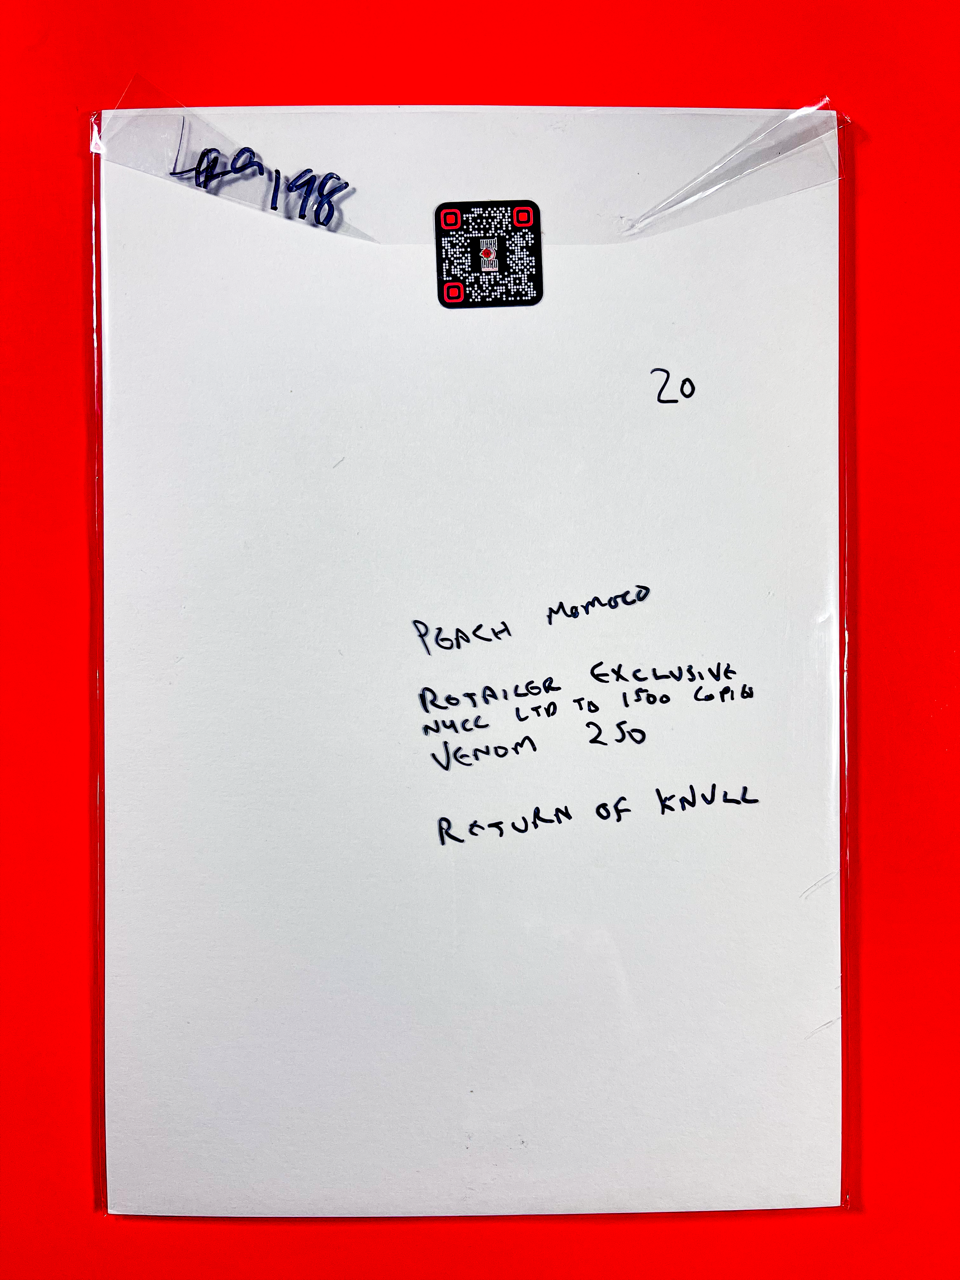 Laa198
20
PEACH MOMOCO
RETAILER EXCLUSIVE
NYCC LTD TO 1500 COPIES
VENOM 250
RETURN OF KNULL